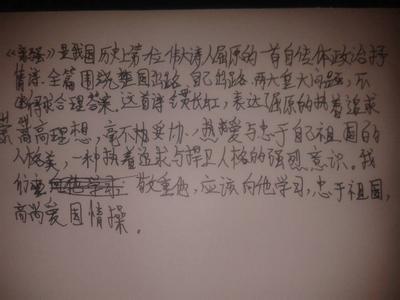 《离骚》是我国历史上第一位伟大诗人屈原的一首自传体政治抒
情诗。全篇围绕楚国出路、自己出路,两大重大问题,不
得求合理答案。这首诗气贯长虹,表达了屈原的执着追求
崇高理想,毫不妥协,热爱与忠于自己祖国的
人格美,一种执着追求与捍卫人格的强烈意识。我
们要敬重他,应该向他学习,忠于祖国,
高尚爱国情操。